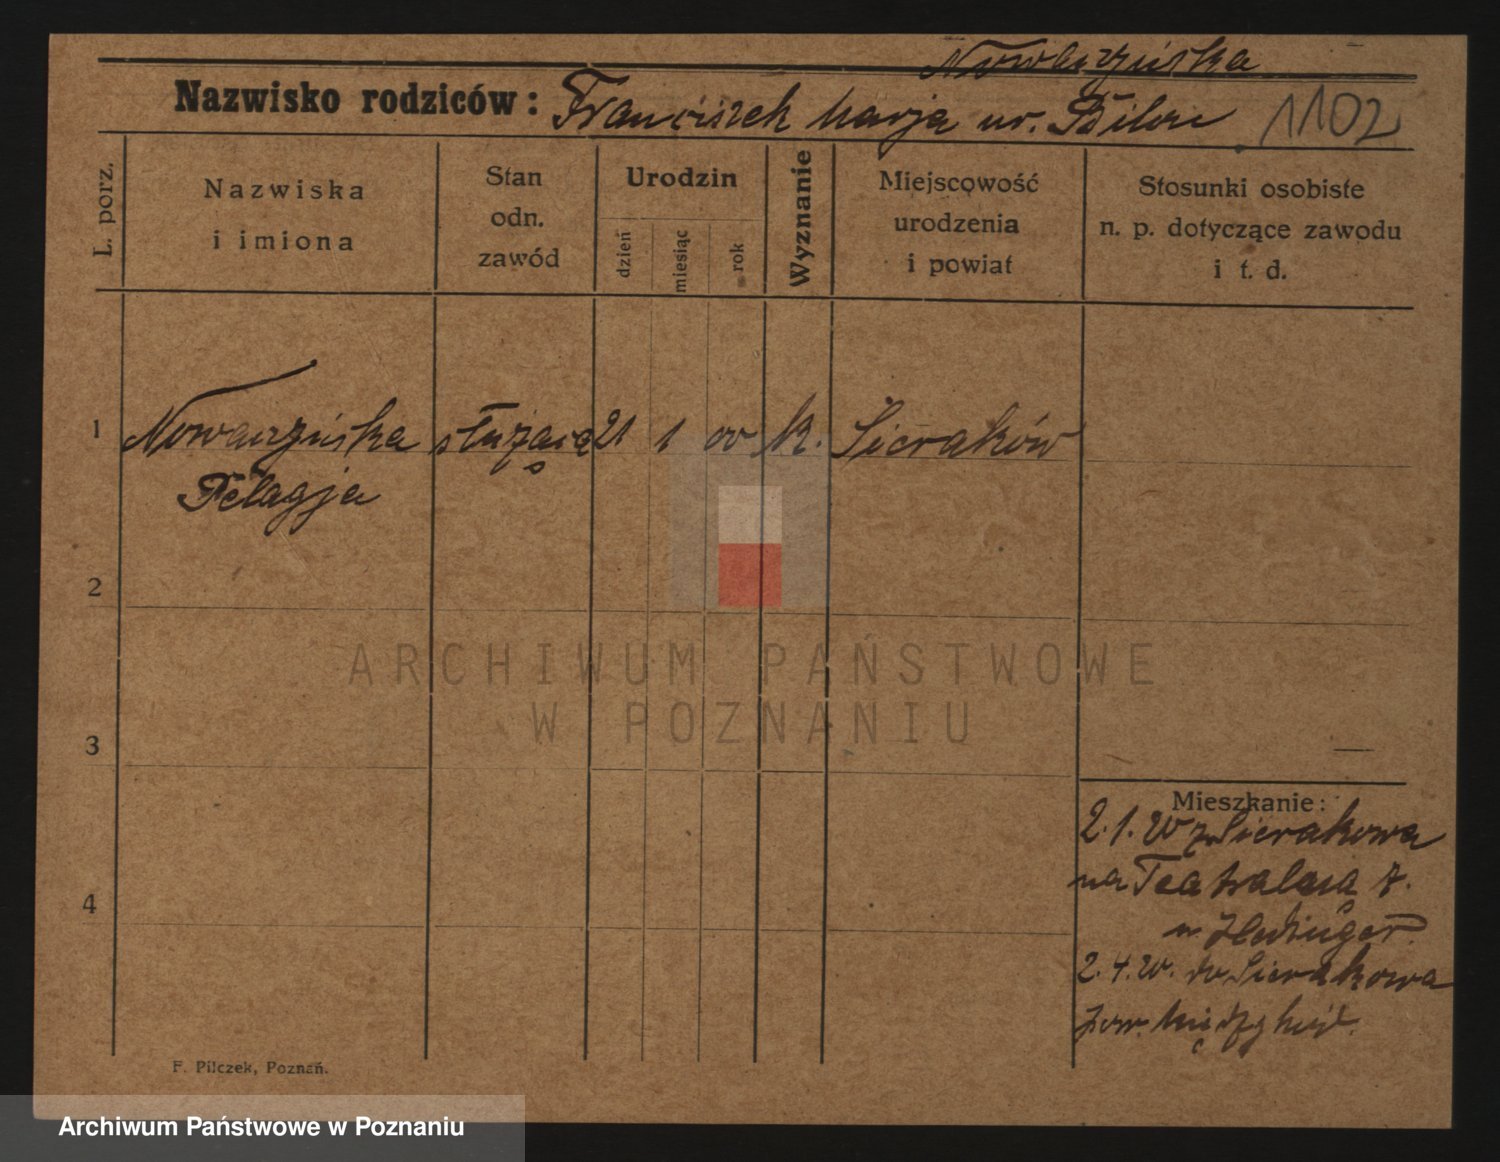 Nowaczyńska
Nazwisko rodziców: Franciszek Marja ur. 1102
L. porz.
Nazwiska
i imiona
Stan
odn.
zawód
Urodzin
dzień
miesiąc
rok
Wyznanie
Miejscowość
urodzenia
i powiat
Stosunki osobiste
n. p. dotyczące zawodu
i t. d.
1 Nowaczyńska służąca 21 1 00 k. Sieraków
Pelagja
2
3
4
ARCHIWUM PAŃSTWOWE
W POZNANIU
Mieszkanie:
2.1.20 z Sierakowa
na Teatralna 7.
u
2.4.20. do Sierakowa
pow.
F. Pilczek, Poznań.
Archiwum Państwowe w Poznaniu